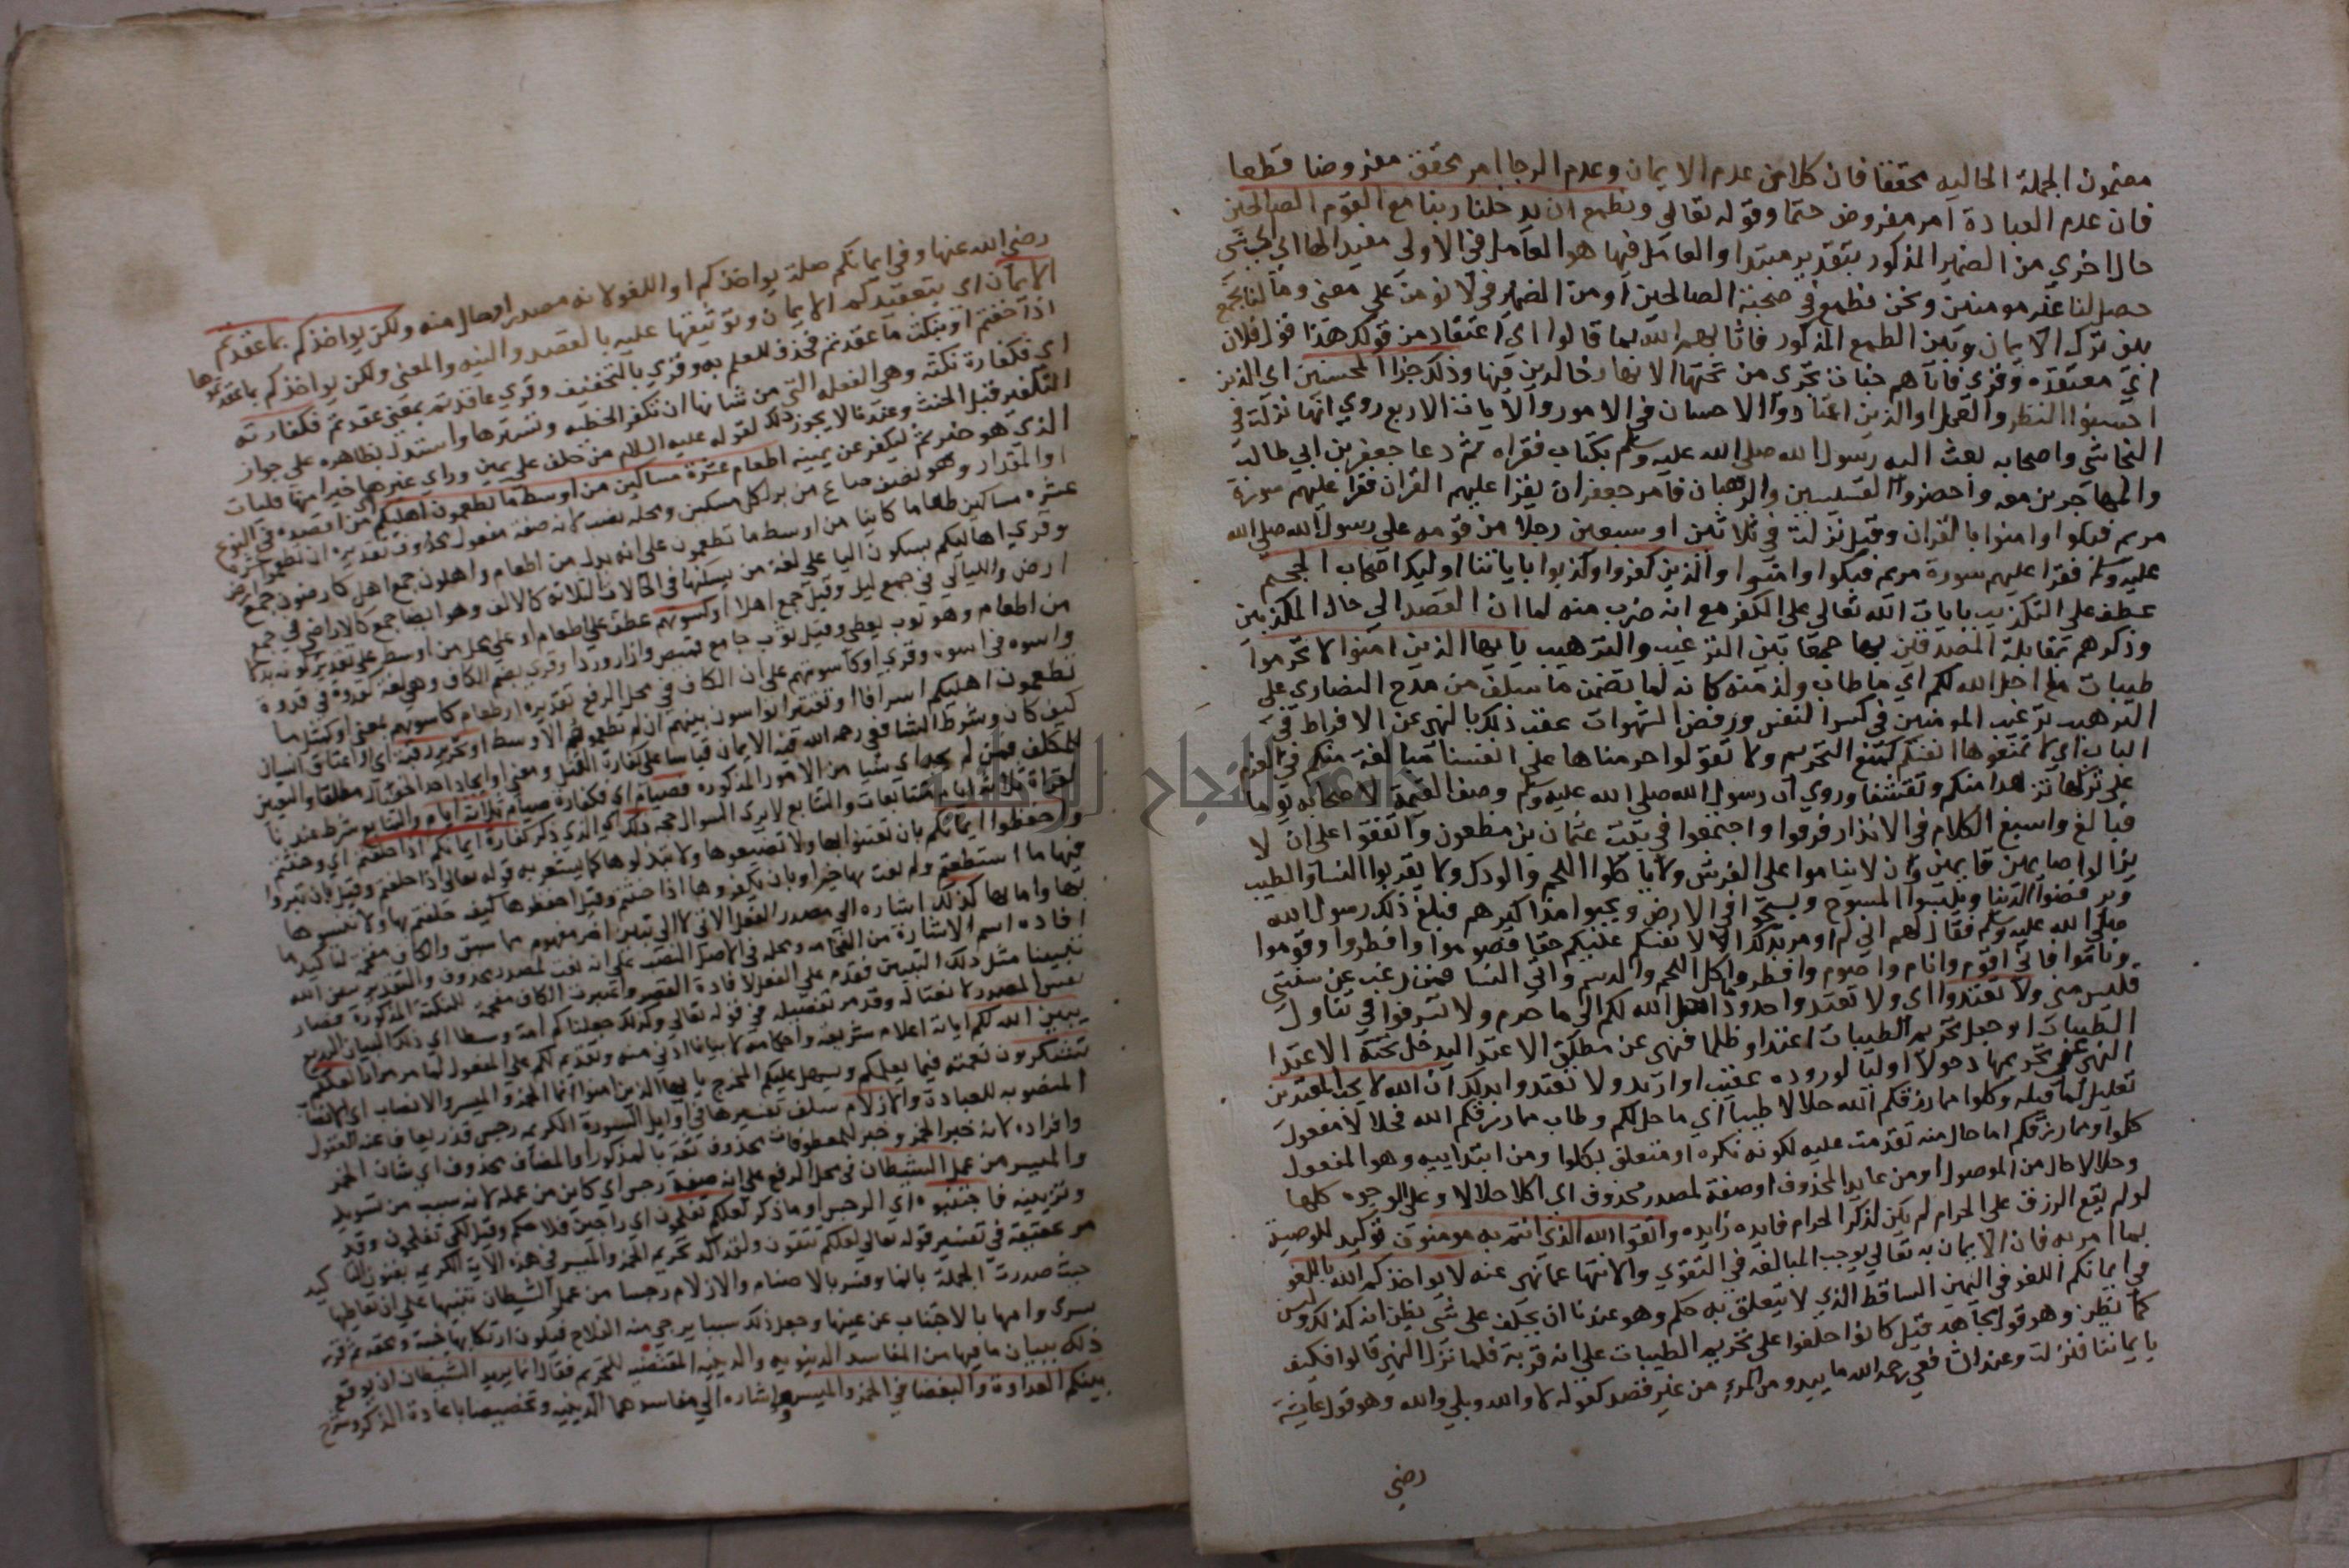 مضمون الجملة الحاليه محققا فان كلا من عدم الايمان وعدم الرجا امر محقق مفروضا قطعا
فان عدم العبادة امر مفروض حتما وقوله تعالي ونطمع ان يدخلنا ربنا مع القوم الصالحين
حال اخري من الضمير المذكور بتقدير مبتدا والعامل فيها هو العامل في الاولي مقيدا بها اي اي شي
حصل لنا غير مومنين ونحن نطمع في صحبة الصالحين او من الضمير في لا نومن علي معني وما لنا نجمع
بين ترك الايمان وبين الطمع المذكور فاثابهم الله بما قالوا اي اعتقاد من قولك هذا قول فلان
اي معتقده وقري فاتاهم جنات تجري من تحتها الانهار خالدين فيها وذلك جزا المحسنين اي الذين
احسنوا النظر والعمل او الذين اعتادوا الاحسان في الامور والايات الاربع روي انها نزلت في
النجاشي واصحابه بعث اليه رسول الله صلي الله عليه وسلم بكتاب فقراه ثم دعا جعفر بن ابي طالب
والمهاجرين معه واحضروا القسيسين والرهبان فامر جعفر ان يقرا عليهم القران فقرا عليهم سورة
مريم فبكوا وامنوا بالقران وقيل نزلت في ثلاثين او سبعين رجلا من قومه علي رسول الله صلي الله
عليه وسلم فقرا عليهم سورة مريم فبكوا وامنوا والذين كفروا وكذبوا باياتنا اوليك اصحاب الجحيم
عطف علي التكذيب بايات الله تعالي علي الكفر مع انه ضرب منه لما ان القصد الي حال المكذبين
وذكرهم بمقابلة المصدقين بها جمعا بين الترغيب والترهيب يا ايها الذين امنوا لا تحرموا
طيبات ما احل الله لكم اي ما طاب ولذ منه كانه لما تضمن ما سلف من مدح النصاري علي
الترهيب ترغيب المومنين في كسر النفس ورفض الشهوات عقب ذلك بالنهي عن الافراط في
الباب اي لا تمنعوها انفسكم كمنع التحريم ولا تقولوا حرمناها علي انفسنا مبالغة منكم في العزم
علي تركها تزهدا منكم وتقشفا وروي ان رسول الله صلي الله عليه وسلم وصف القيمة لاصحابه يوما
فبالغ واسبغ الكلام في الانذار فرقوا واجتمعوا في بيت عثمان بن مظعون واتفقوا علي ان لا
يزالوا صايمين قايمين وان لا يناموا علي الفرش ولا ياكلوا اللحم والودك ولا يقربوا النسا والطيب
ويرفضوا الدنيا ويلبسوا المسوح ويسيحوا في الارض ويجبوا مذاكيرهم فبلغ ذلك رسول الله
صلي الله عليه وسلم فقال لهم اني لم اومر بذلك ان لانفسكم عليكم حقا فصوموا وافطروا وقوموا
وناموا فاني اقوم وانام واصوم وافطر واكل اللحم والدسم واتي النسا فمن رغب عن سنتي
فليس مني ولا تعتدوا اي ولا تعتدوا حدود ما احل الله لكم الي ما حرم ولا تسرفوا في تناول
الطيبات او جعل تحريم الطيبات اعتدا وظلما فنهي عن مطلق الاعتدا ليدخل تحته الاعتدا
النهي عن تحريمها دخولا اوليا لوروده عقيبه او اريد ولا تعتدوا بذلك ان الله لا يحب المعتدين
تعليل لما قبله وكلوا مما رزقكم الله حلالا طيبا اي ما حل لكم وطاب مما رزقكم الله فحلالا مفعول
كلوا ومما رزقكم اما حال منه تقدمت عليه لكونه نكره او متعلق بكلوا ومن ابتداييه وهو المفعول
وحلالا حال من الموصول او من عايده المحذوف او صفة لمصدر محذوف اي اكلا حلالا وعلي الوجوه كلها
لو لم يقع الرزق علي الحرام لم يكن لذكر الحرام فايده زايده واتقوا الله الذي انتم به مومنون توكيد للوصية
بما امر به فان الايمان به تعالي يوجب المبالغه في التقوي والانتها عما نهي عنه لا يواخذكم الله باللغو
في ايمانكم اللغو في اليمين الساقط الذي لا يتعلق به حكم وهو عندنا ان يحلف علي شي يظن انه كذلك وليس
كما يظن وهو قول مجاهد قيل كانوا حلفوا علي تحريم الطيبات علي انه قربة فلما نزل النهي قالوا فكيف
بايماننا فنزلت وعند الشافعي رحمه الله ما يبدو من المرء من غير قصد كقوله لا والله وبلي والله وهو قول عايشة
رضي
رضي الله عنها وفي ايمانكم صلة يواخذكم او اللغو لانه مصدر او حال منه ولكن يواخذكم بما عقدتم
الايمان اي بتعقيدكم الايمان وتوثيقها عليه بالقصد والنيه والمعني ولكن يواخذكم بما عقدتموها
اذا حنثتم او بنكث ما عقدتم فحذف للعلم به وقري بالتخفيف وقري عاقدتم بمعني عقدتم فكفارته
اي فكفارة نكثه وهي الفعله التي من شانها ان تكفر الخطيه وتسترها واستدل بظاهره علي جواز
التكفير قبل الحنث وعندنا لا يجوز ذلك لقوله عليه السلام من حلف علي يمين وراي غيرها خيرا منها فليات
الذي هو خير ثم ليكفر عن يمينه اطعام عشرة مساكين من اوسط ما تطعمون اهليكم اي من اقصده في النوع
او المقدار وهو نصف صاع من بر لكل مسكين ومحله نصب لانه صفة مفعول محذوف تقديره ان تطعموا
عشره مساكين طعاما كاينا من اوسط ما تطعمون علي انه بدل من اطعام واهلون جمع اهل كارضون جمع ارض
وقري اهاليكم بسكون اليا علي لغة من يسكنها في الحالات الثلاثة كالالف وهو ايضا جمع كالاراضي في جمع
ارض والليالي في جمع ليل وقيل جمع اهلا او كسوتهم عطف علي اطعام او علي محل من اوسط علي تقدير كونه بدلا
من اطعام وهو ثوب يغطي وقيل ثوب جامع قميص وازار وردا وقري بضم الكاف وهي لغة كقدوة في قدوة
واسوه في اسوه وقري او كاسوتهم علي ان الكاف في محل الرفع تقديره او طعام كاسوتهم بمعني او كمثل ما
تطعمون اهليكم اسرافا او تقتيرا تواسون بينهم ان لم تطعموهم الاوسط او تحرير رقبة اي او اعتاق انسان
كيف كان وشرط الشافعي رحمه الله فيه الايمان قياسا علي كفارة القتل ومعني او ايجاب احدا الخصال مطلقا والتعيين
للمكلف فمن لم يجد اي شيا من الامور المذكوره فصيام اي فكفارة صيام ثلاثة ايام والتتابع شرط عندنا
لقراة ثلاثة ايام متتابعات والشافعي لا يري الشواذ حجه ذلك اي الذي ذكر كفارة ايمانكم اذا حلفتم اي وحنثتم
واحفظوا ايمانكم بان تضنوا بها ولا تضيعوها ولا تبذلوها كما يشعر به قوله تعالي اذا حلفتم وقيل بان تبروا
فيها ما استطعتم ولم يفت بها خير او بان تكفروها اذا حنثتم وقيل احفظوها كيف حلفتم بها ولا تنسوها
تهاونا بها كذلك اشاره الي مصدر الفعل الاتي لا الي تبيين اخر مفهوم مما سبق والكاف مقحمة لتاكيد ما
افاده اسم الاشارة من الفخامه ومحله في الاصل النصب علي انه نعت لمصدر محذوف والتقدير يبين الله
تبيينا مثل ذلك التبيين فقدم علي الفعل لافادة القصر واعتبرت الكاف مقحمة للنكتة المذكورة فصار
نفس المصدر لا نعتا له وقد مر تفصيله في قوله تعالي وكذلك جعلناكم امة وسطا اي ذلك البيان البديع
يبين الله لكم اياته اعلام شريعته واحكامه لا بيانا ادني منه وتقديم لكم علي المفعول لما مر مرارا لعلكم
تشكرون نعمته فيما يعلمكم ويسهل عليكم المخرج يا ايها الذين امنوا انما الخمر والميسر والانصاب اي الاصنام
المنصوبه للعبادة والازلام سلف تفسيرها في اوايل السورة الكريمه رجس قذر يعاف عنه العقول
وافراده لانه خبر الخمر وخبر المعطوفات محذوف ثقة بالمذكور او المضاف محذوف اي شان الخمر
والميسر من عمل الشيطان في محل الرفع علي انه صفة رجس اي كاين من عمله لانه سبب من تسويله
وتزيينه فاجتنبوه اي الرجس او ما ذكر لعلكم تفلحون اي راجين فلاحكم وقيل لكي تفلحون وقد
مر تحقيقه في تفسير قوله تعالي لعلكم تتقون ولقد اكد تحريم الخمر والميسر في هذه الاية الكريمه بفنون التاكيد
حيث صدرت الجملة بانما وقرنا بالاصنام والازلام رجسا من عمل الشيطان تنبيها علي ان تعاطيهما
شر وامرنا بالاجتناب عن عينهما وجعل ذلك سببا يرجي منه الفلاح فيكون ارتكابهما خيبة ومحقه ثم قرر
ذلك ببيان ما فيهما من المفاسد الدنيويه والدينيه المقتضيه للتحريم فقال انما يريد الشيطان ان يوقع
بينكم العداوة والبغضا في الخمر والميسر واشاره الي مفاسدهما الدينيه وتخصيصها باعادة الذكر وشرح